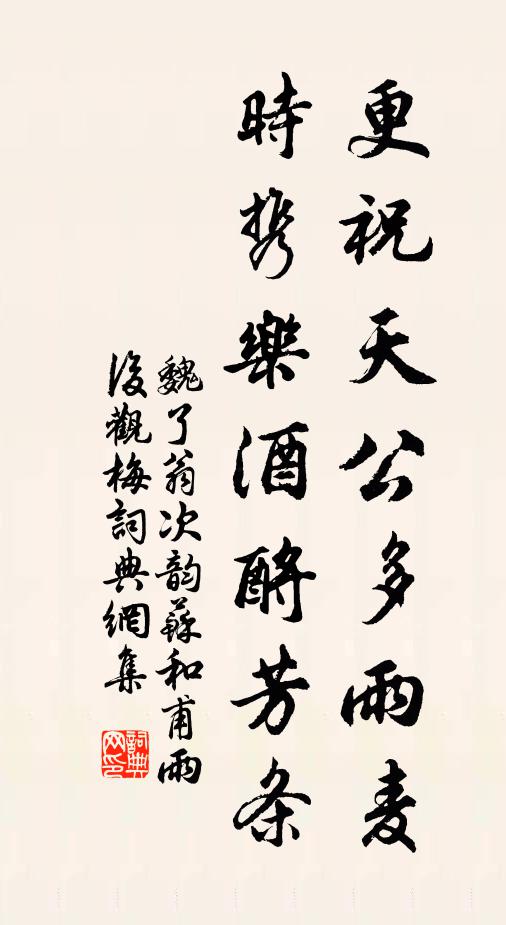 更祝天公多雨麦
時携樂酒酹芳条
魏了翁次韵蘇和甫雨
後觀梅詞典網集
詞典网印